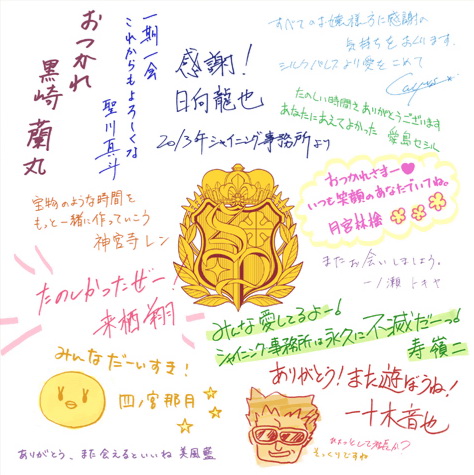 おつかれ
黒崎 蘭丸
一期一会
これからもよろしくな
聖川真斗
感謝!
日向龍也
2013年シャイニング事務所より
すべてのお嬢様方に感謝の
気持ちをおくります。
シルクパレスより愛をこめて
Camus
たのしい時間をありがとうございます
あなたにあえてよかった 愛島セシル
おつかれさまー♥
いつも笑顔のあなたでいてね。
月宮林檎
宝物のような時間を
もっと一緒に作っていこう
神宮寺レン
またお会いしましょう。
一ノ瀬トキヤ
たのしかったぜー!
来栖翔
みんな愛してるよー!
シャイニング事務所は永久に不滅だーっ!
寿嶺二
みんなだーいすき!
四ノ宮那月
ありがとう!また遊ぼうね!
一十木音也
そっくりですや
ありがとう、また会えるといいね 美風藍